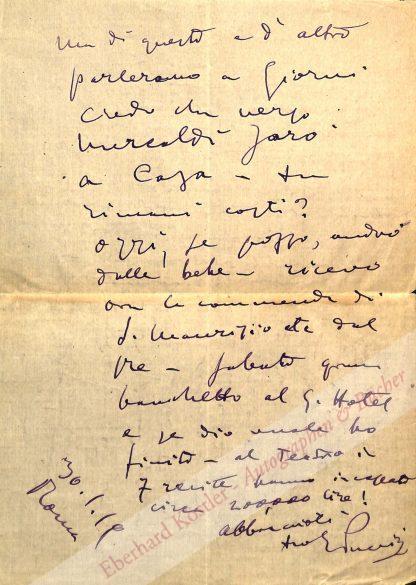 ma di questo e d'altro
parleremo a giorni
credo che verso
mercoldì sarò
a Casa - tu
rimani costì?
oggi, se posso, andrò
dalle bebe - ricevo
ora la commenda di
S. Maurizio etc dal
Re - sabato gran
banchetto al G. Hotel
e se dio vuole ho
finito - al Teatro in
7 recite hanno incassato
circa lire!
abbraccioti
tuo
30.1.19
Roma
Eberhard Köstler Autographen & Bücher